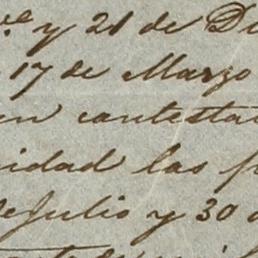 y 21 de Di
17 de Marzo
en contesta
idad las p
de Julio y 30 d